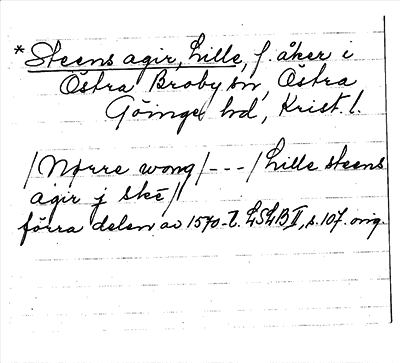 * Steens agir, Lille, f. åker i
Östra Broby sn, Östra
Göinge hd, Krist. l.
/Nørre wong/ --- /Lille steens
agir j ské/
förra delen av 1570-t. LSLB II, s. 107. orig.